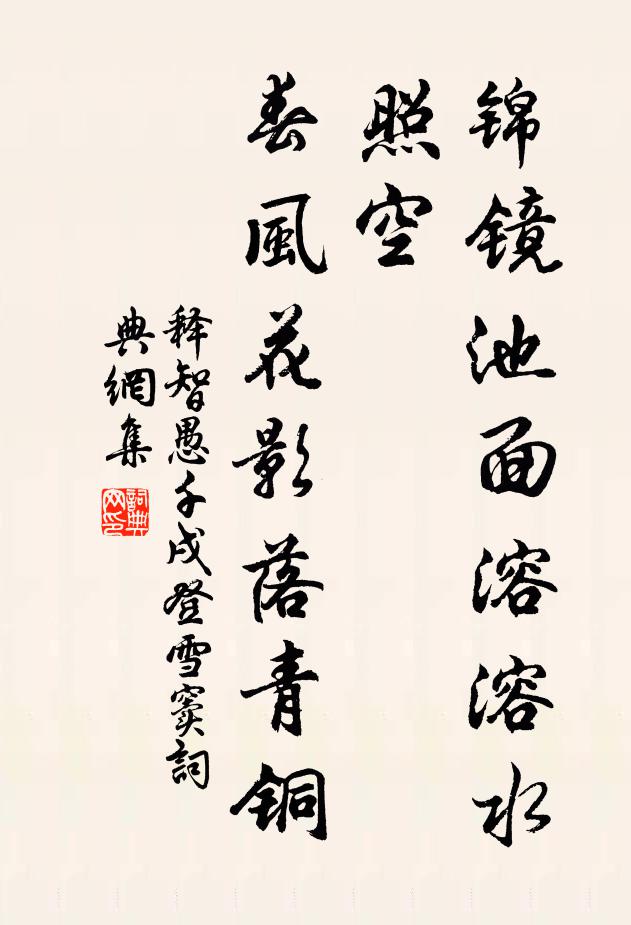 锦镜池面溶溶水
照空
春風花影落青铜
释智愚千戍登雪窦詞
典網集
詞典网印